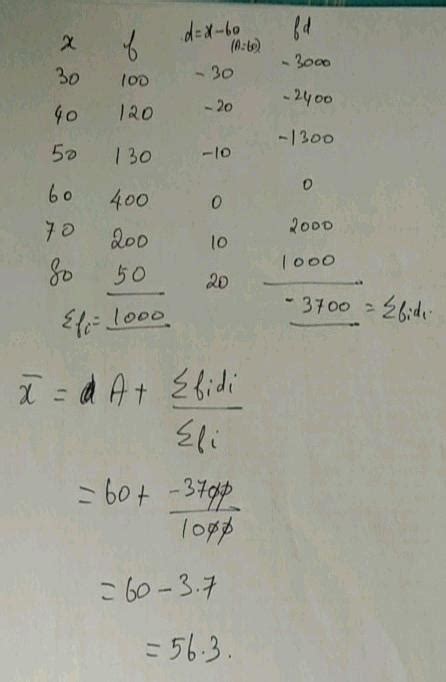 x f d=x-60 fd
(A=60)
30 100 -30 -3000
40 120 -20 -2400
50 130 -10 -1300
60 400 0 0
70 200 10 2000
80 50 20 1000
Σfi= 1000 -3700 = Σfidi
x̄ = A + Σfidi / Σfi
= 60 + -3700 / 1000
= 60 - 3.7
= 56.3.